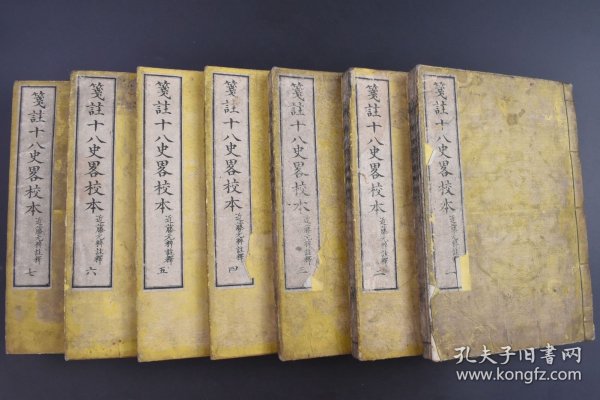 箋註十八史畧校本 近藤元粹註釋 一
箋註十八史畧校本 近藤元粹註釋 二
箋註十八史畧校本 近藤元粹註釋 三
箋註十八史畧校本 近藤元粹註釋 四
箋註十八史畧校本 近藤元粹註釋 五
箋註十八史畧校本 近藤元粹註釋 六
箋註十八史畧校本 近藤元粹註釋 七
孔夫子旧書网
www.kongfz.com